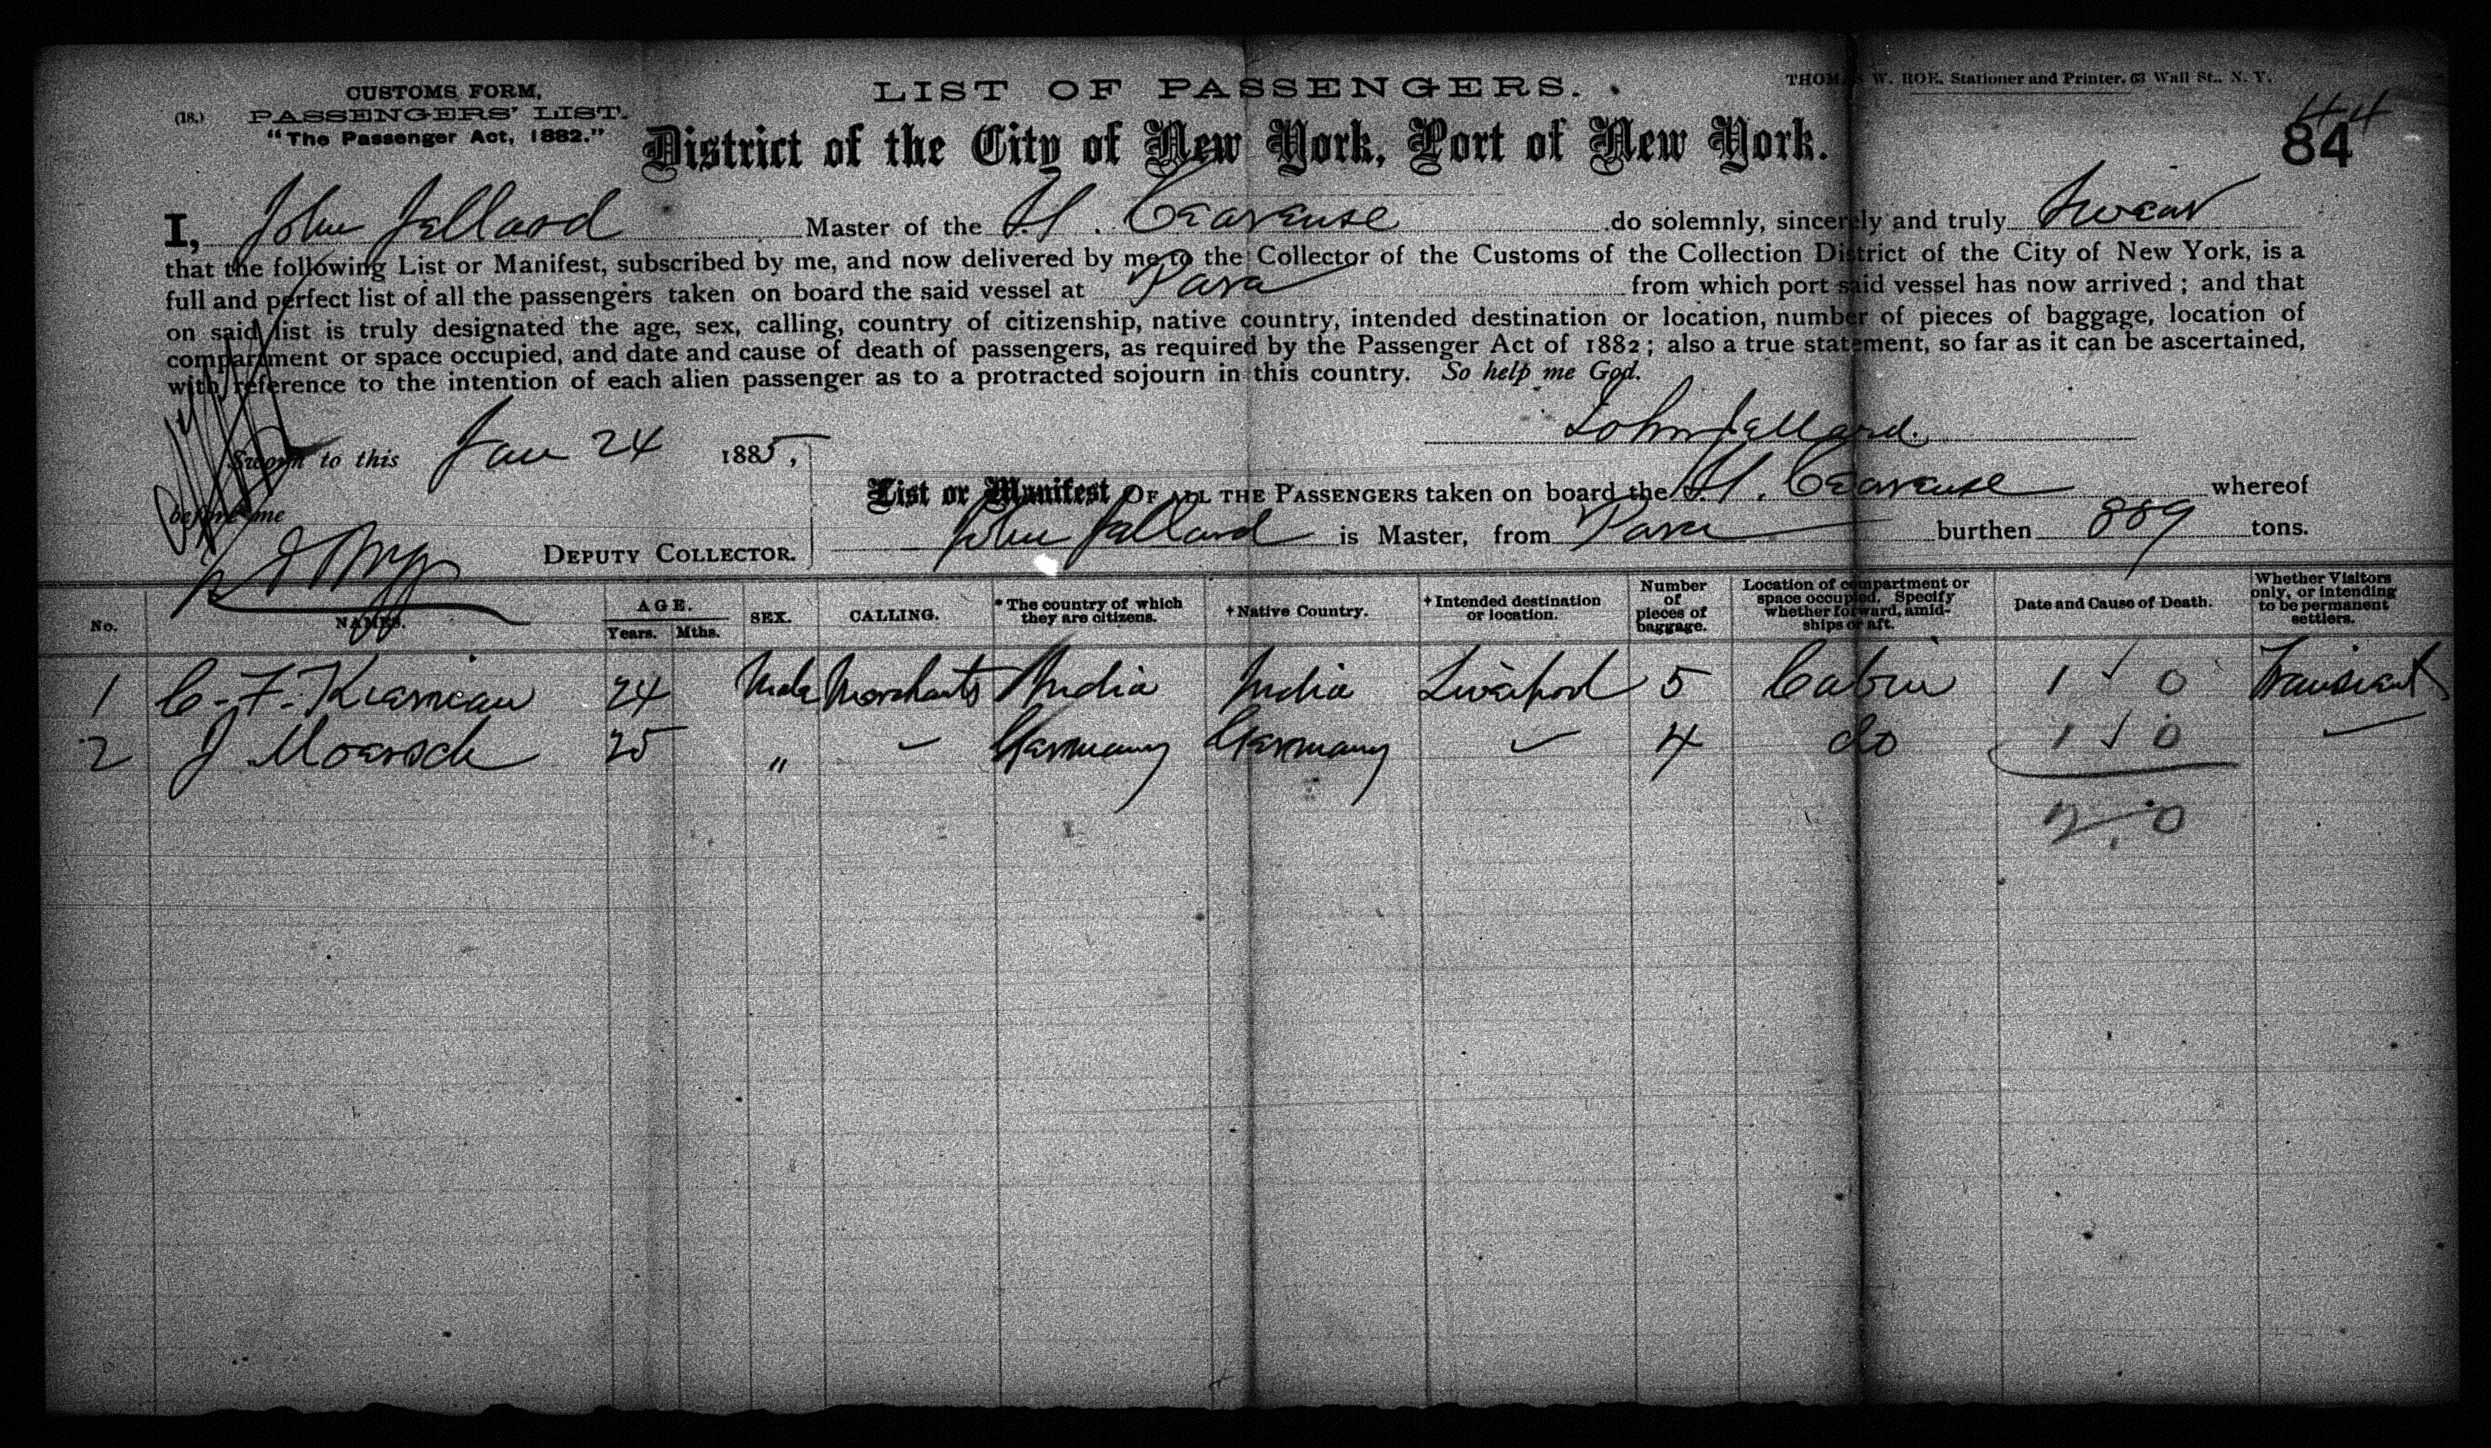 CUSTOMS FORM,
(18.) PASSENGERS' LIST.
"The Passenger Act, 1882."
LIST OF PASSENGERS.
THOMAS W. ROE, Stationer and Printer, 63 Wall St., N. Y.
44
84
District of the City of New York, Port of New York.
I, John Jellard Master of the do solemnly, sincerely and truly Swear
that the following List or Manifest, subscribed by me, and now delivered by me to the Collector of the Customs of the Collection District of the City of New York, is a
full and perfect list of all the passengers taken on board the said vessel at Para from which port said vessel has now arrived; and that
on said list is truly designated the age, sex, calling, country of citizenship, native country, intended destination or location, number of pieces of baggage, location of
compartment or space occupied, and date and cause of death of passengers, as required by the Passenger Act of 1882; also a true statement, so far as it can be ascertained,
with reference to the intention of each alien passenger as to a protracted sojourn in this country. So help me God.
John Jellard.
Sworn to this Jan 24 1885,
before me
DEPUTY COLLECTOR.
List or Manifest OF ALL THE PASSENGERS taken on board the whereof
John Jellard is Master, from Para burthen 889 tons.
No. NAMES. AGE. Years. Mths. SEX. CALLING. * The country of which they are citizens. † Native Country. † Intended destination or location. Number of pieces of baggage. Location of compartment or space occupied. Specify whether forward, amidships or aft. Date and Cause of Death. Whether Visitors only, or intending to be permanent settlers.
1 C. F. 24 Male Merchants India India Liverpool 5 Cabin 1 ✓ 0 Transient
2 J Moersch 25 " Germany Germany 4 do 1 ✓ 0
2.0